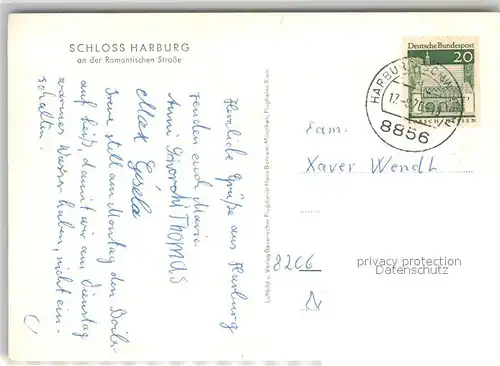 SCHLOSS HARBURG
an der Romantischen Straße
Herzliche Grüße aus Harburg
senden euch Maria
Anni Dorothi Thomas
Max Gisela
Irene stell am Montag den Boiler
auf heiß, damit wir am Dienstag
warmes Wasser haben, nicht ein-
schalten.
Luftbild u. Verlag Bayerischer Flugdienst Hans Bertram, München, Flughafen Riem
Deutsche Bundespost
20
HARBURG (SCHWAB)
8856
Fam.
Xaver Wendl
8206
privacy protection
watermark